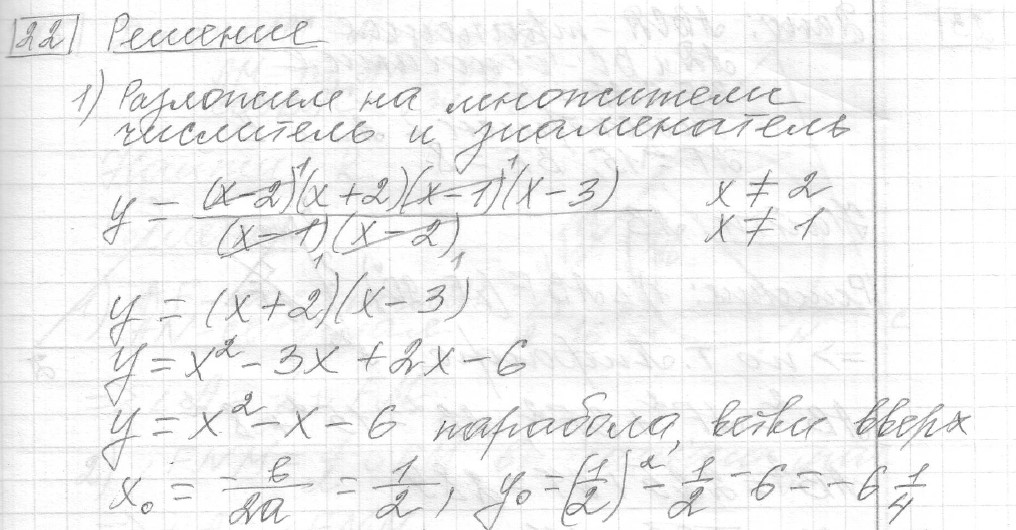 22 Решение
1) Разложим на множители
числитель и знаменатель
y = (x-2)¹(x+2)(x-1)¹(x-3) / (x-1)₁(x-2)₁ x ≠ 2
x ≠ 1
y = (x+2)(x-3)
y = x² - 3x + 2x - 6
y = x² - x - 6 парабола, ветви вверх
x₀ = -в/2a = 1/2, y₀ = (1/2)² - 1/2 - 6 = -6 1/4